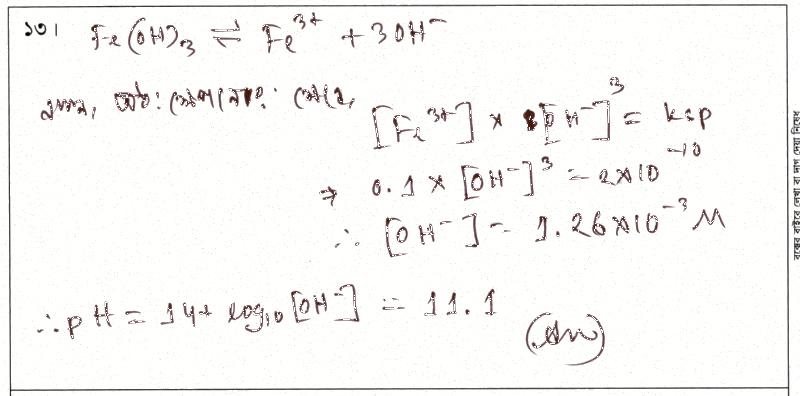 ১৩। Fe(OH)₃ ⇌ Fe³⁺ + 3OH⁻
[Fe³⁺] × [OH⁻]³ = ksp
⇒ 0.1 × [OH⁻]³ = 2×10⁻¹⁰
∴ [OH⁻] = 1.26×10⁻³ M
∴ pH = 14 + log₁₀[OH⁻] = 11.1
(Ans)
বক্সের বাইরে লেখা বা দাগ দেয়া নিষেধ